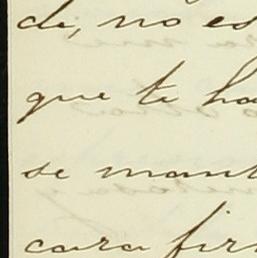 di, no es
que te ha
se mant
cara fir